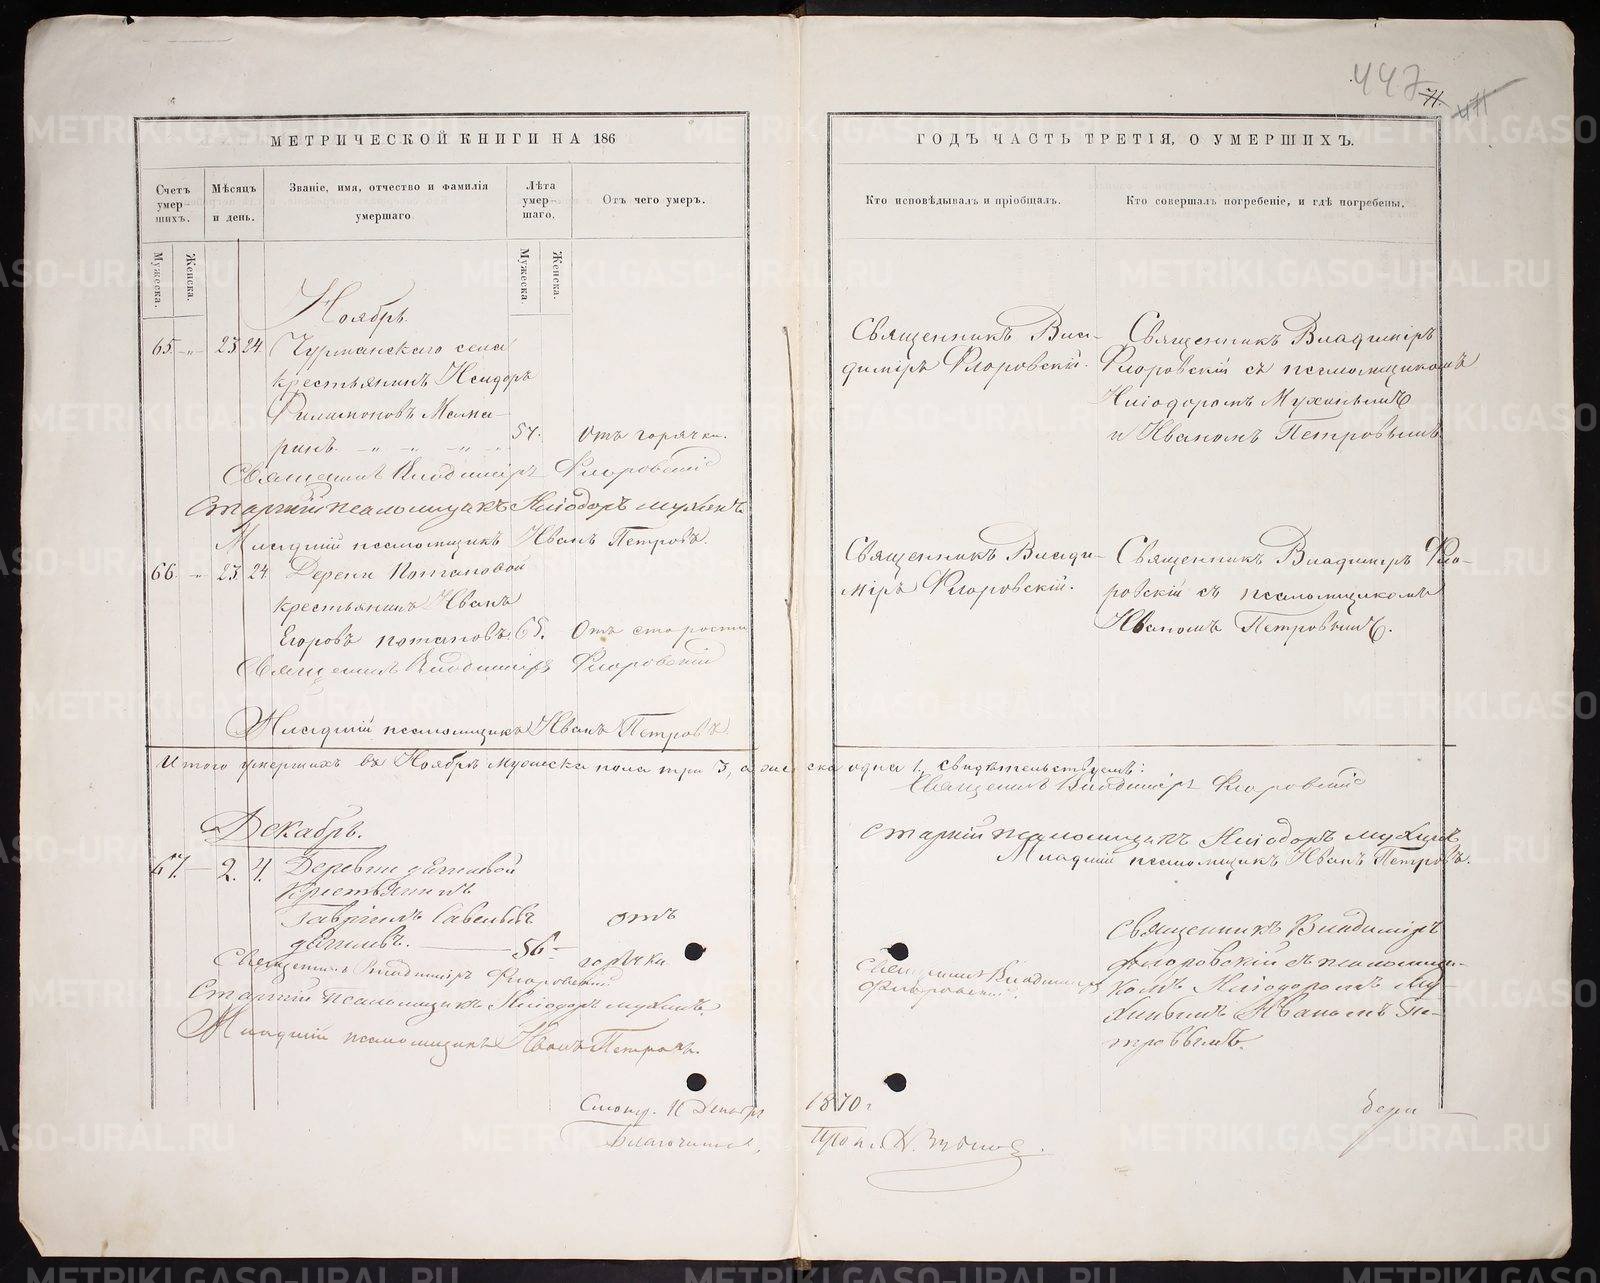 447
71.
471
МЕТРИЧЕСКОЙ КНИГИ НА 186
ГОДЪ ЧАСТЬ ТРЕТІЯ, О УМЕРШИХЪ.
Счетъ умер-шихъ.
Мѣсяцъ и день.
Званіе, имя, отчество и фамилія умершаго.
Лѣта умер-шаго.
Отъ чего умеръ.
Кто исповѣдывалъ и пріобщалъ.
Кто совершалъ погребеніе, и гдѣ погребены.
Мужеска.
Женска.
Мужеска.
Женска.
Ноябрь.
65 - „ - 23 24 Чурманскаго села
крестьянинъ Исидоръ
Филимоновъ Мама-
ринъ. - „ - „ - „ - „ 57. Отъ горячки.
Священникъ Влади-
диміръ Флоровскій.
Священникъ Владиміръ
Флоровскій съ псаломщикомъ
Иліодоромъ Мухинымъ
и Иваномъ Петровымъ.
Священникъ Владиміръ Флоровскій
Старшій псаломщикъ Иліодоръ Мухинъ
Младшій псаломщикъ Иванъ Петровъ.
66. - „ 23 24 Деревни Потаповой
крестьянинъ Иванъ
Егоровъ Потаповъ. 65. Отъ старости
Священникъ Влади-
міръ Флоровскій.
Священникъ Владиміръ Фло-
ровскій съ псаломщикомъ
Иваномъ Петровымъ.
Священникъ Владиміръ Флоровскій
Младшій псаломщикъ Иванъ Петровъ.
Итого умершихъ въ Ноябрѣ мужеска пола три 3, а женска одна 1, свидѣтельствуемъ:
Священникъ Владиміръ Флоровскій
Старшій псаломщикъ Иліодоръ Мухинъ
Младшій псаломщикъ Иванъ Петровъ.
Декабрь.
67. — 2. 4. Деревни
Крестьянинъ
Гавріилъ Савельевъ
56 — отъ горячки
Священникъ Владиміръ
Флоровскій.
Священникъ Владиміръ
Флоровскій съ псаломщи-
комъ Иліодоромъ Му-
хинымъ Иваномъ Пе-
тровымъ.
Священникъ Владиміръ Флоровскій
Старшій псаломщикъ Иліодоръ Мухинъ.
Младшій псаломщикъ Иванъ Петровъ.
Декабря 1870 г
Благочинный,
METRIKI.GASO-URAL.RU